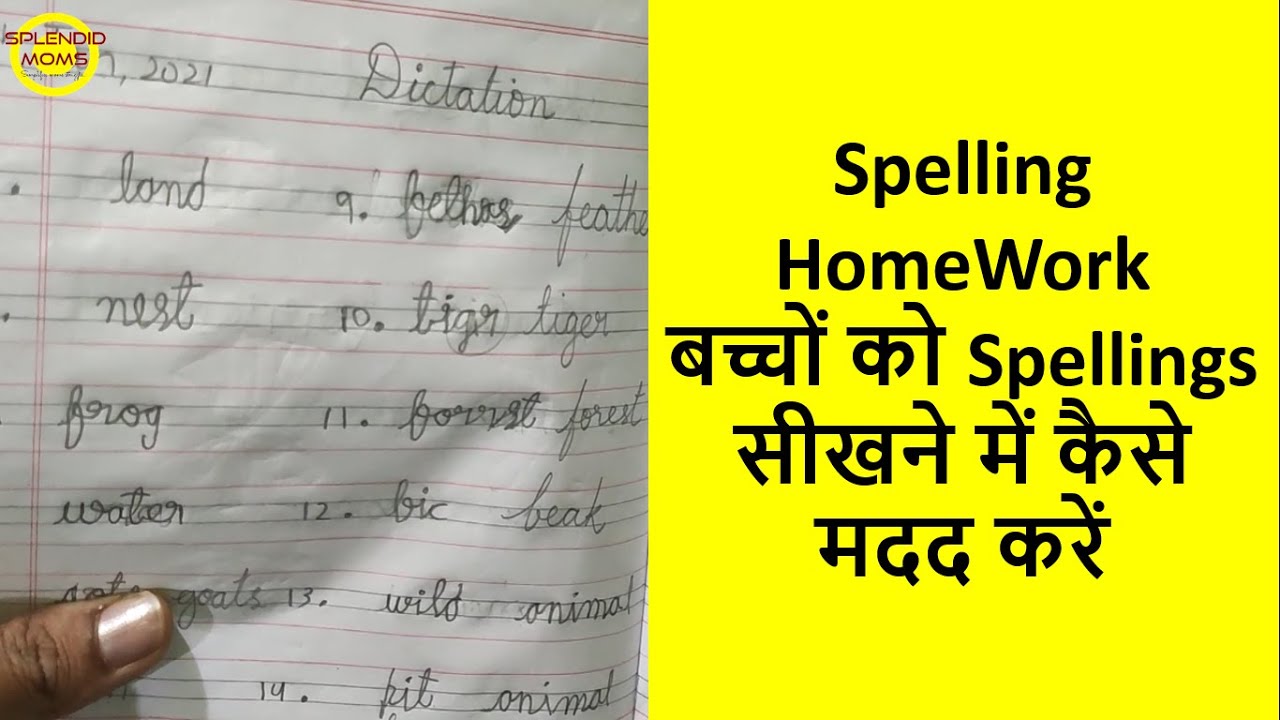 SPLENDID
MOMS
, 2021 Dictation
land 9. fethas feathe
nest 10. tigr tiger
frog 11. forrst forest
water 12. bic beak
goats 13. wild animal
14. pit animal
Spelling
HomeWork
बच्चों को Spellings
सीखने में कैसे
मदद करें